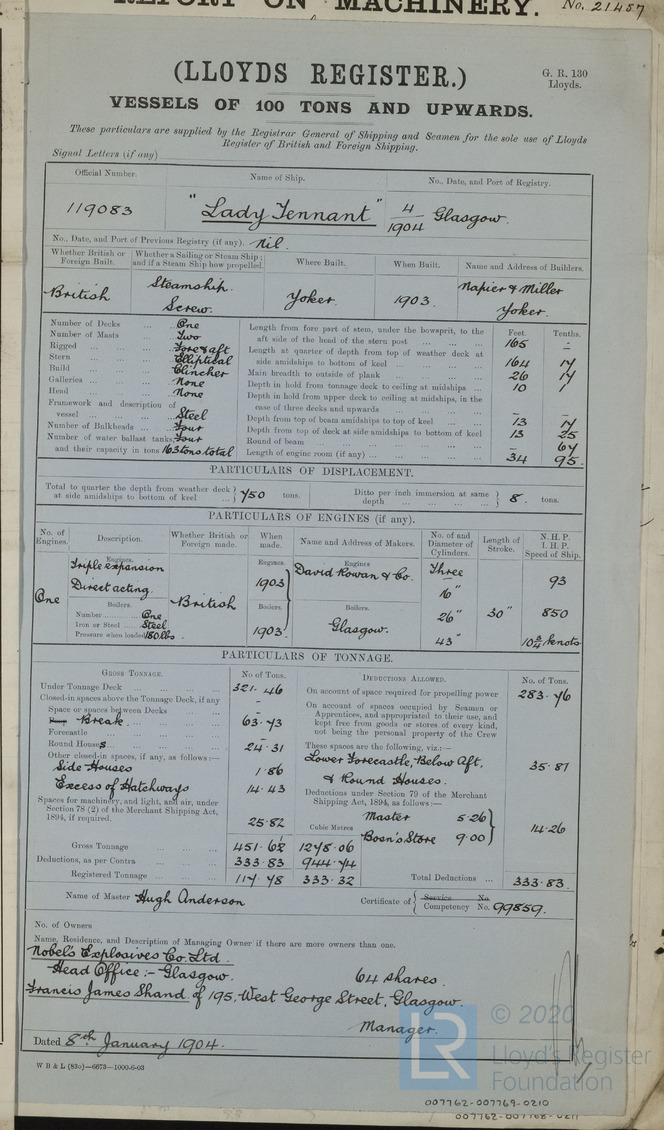 REPORT ON MACHINERY. No. 21457
(LLOYDS REGISTER.)
G. R. 130
Lloyds.
VESSELS OF 100 TONS AND UPWARDS.
These particulars are supplied by the Registrar General of Shipping and Seamen for the sole use of Lloyds
Register of British and Foreign Shipping.
Signal Letters (if any)
Official Number. Name of Ship. No., Date, and Port of Registry.
119083 "Lady Tennant" 4/1904 Glasgow.
No., Date, and Port of Previous Registry (if any). Nil.
Whether British or Foreign Built. Whether a Sailing or Steam Ship; and if a Steam Ship how propelled. Where Built. When Built. Name and Address of Builders.
British Steamship. Screw. Yoker. 1903. Napier & Miller Yoker.
Number of Decks ... One
Number of Masts ... Two
Rigged ... Fore & aft
Stern ... Elliptical
Build ... Clincher
Galleries ... None
Head ... None
Framework and description of vessel ... Steel
Number of Bulkheads ... Four
Number of water ballast tanks, Four
and their capacity in tons 163 tons total
Feet. Tenths.
Length from fore part of stem, under the bowsprit, to the aft side of the head of the stern post ... 165 -
Length at quarter of depth from top of weather deck at side amidships to bottom of keel ... 164 7
Main breadth to outside of plank ... 26 7
Depth in hold from tonnage deck to ceiling at midships ... 10 1
Depth in hold from upper deck to ceiling at midships, in the case of three decks and upwards ... - -
Depth from top of beam amidships to top of keel ... 13 7
Depth from top of deck at side amidships to bottom of keel 13 25
Round of beam ... - 67
Length of engine room (if any) ... 34 95
PARTICULARS OF DISPLACEMENT.
Total to quarter the depth from weather deck at side amidships to bottom of keel ... 750 tons. Ditto per inch immersion at same depth ... 8. tons.
PARTICULARS OF ENGINES (if any).
No. of Engines. Description. Whether British or Foreign made. When made. Name and Address of Makers. No. of and Diameter of Cylinders. Length of Stroke. N.H.P. I.H.P. Speed of Ship.
One
Engines.
Triple expansion
Direct acting.
Boilers.
Number ... One
Iron or Steel ... Steel
Pressure when loaded 180 lbs.
British
Engines.
1903
Boilers.
1903.
Engines
David Rowan & Co.
Boilers.
Glasgow.
Three
16"
26"
43"
30"
93
850
10¾ knots
PARTICULARS OF TONNAGE.
GROSS TONNAGE. No of Tons.
Under Tonnage Deck ... 321.46
Closed-in spaces above the Tonnage Deck, if any -
Space or spaces between Decks ... -
Break ... 63.73
Forecastle ...
Round Houses ... 24.31
Other closed-in spaces, if any, as follows:—
Side Houses 1.86
Excess of Hatchways 14.43
Spaces for machinery, and light, and air, under Section 78 (2) of the Merchant Shipping Act, 1894, if required. 25.82
Cubic Metres
Gross Tonnage ... 451.62 1278.06
Deductions, as per Contra ... 333.83 944.74
Registered Tonnage ... 117.78 333.32
DEDUCTIONS ALLOWED. No. of Tons.
On account of space required for propelling power 283.76
On account of spaces occupied by Seamen or Apprentices, and appropriated to their use, and kept free from goods or stores of every kind, not being the personal property of the Crew
These spaces are the following, viz.:—
Lower Forecastle, Below Aft,
& Round Houses. 35.81
Deductions under Section 79 of the Merchant Shipping Act, 1894, as follows:—
Master 5.26
Bosn's Store 9.00
14.26
Total Deductions ... 333.83.
Name of Master Hugh Anderson Certificate of Service No. Competency No. 99859.
No. of Owners
Name, Residence, and Description of Managing Owner if there are more owners than one.
Nobel's Explosives Co. Ltd.
Head Office:- Glasgow. 64 shares.
Francis James Shand of 195, West George Street, Glasgow.
Manager.
Dated 8th January 1904.
W B & L (83o)—6673—1000-6-03
© 2020
LR
Lloyd's Register
Foundation
007762-007769-0210
007762-007768-0211